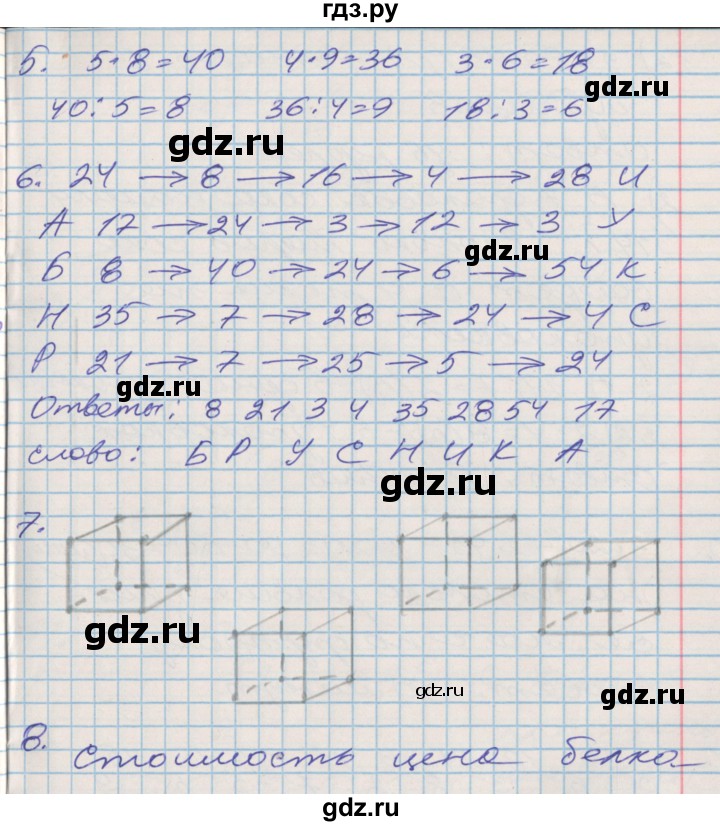 гдз.ру
5. 5·8=40 4·9=36 3·6=18
gdz.ru
40:5=8 36:4=9 18:3=6
gdz.ru
6. 24 → 8 → 16 → 4 → 28 И
А 17 → 24 → 3 → 12 → 3 У
gdz.ru
Б 8 → 40 → 24 → 6 → 54 К
Н 35 → 7 → 28 → 24 → 4 С
Р 21 → 7 → 25 → 5 → 24
gdz.ru
Ответы: 8 21 3 4 35 28 54 17
слово: Б Р У С Н И К А
gdz.ru
7.
gdz.ru
gdz.ru
gdz.ru
8. Стоимость цена белка
gdz.ru